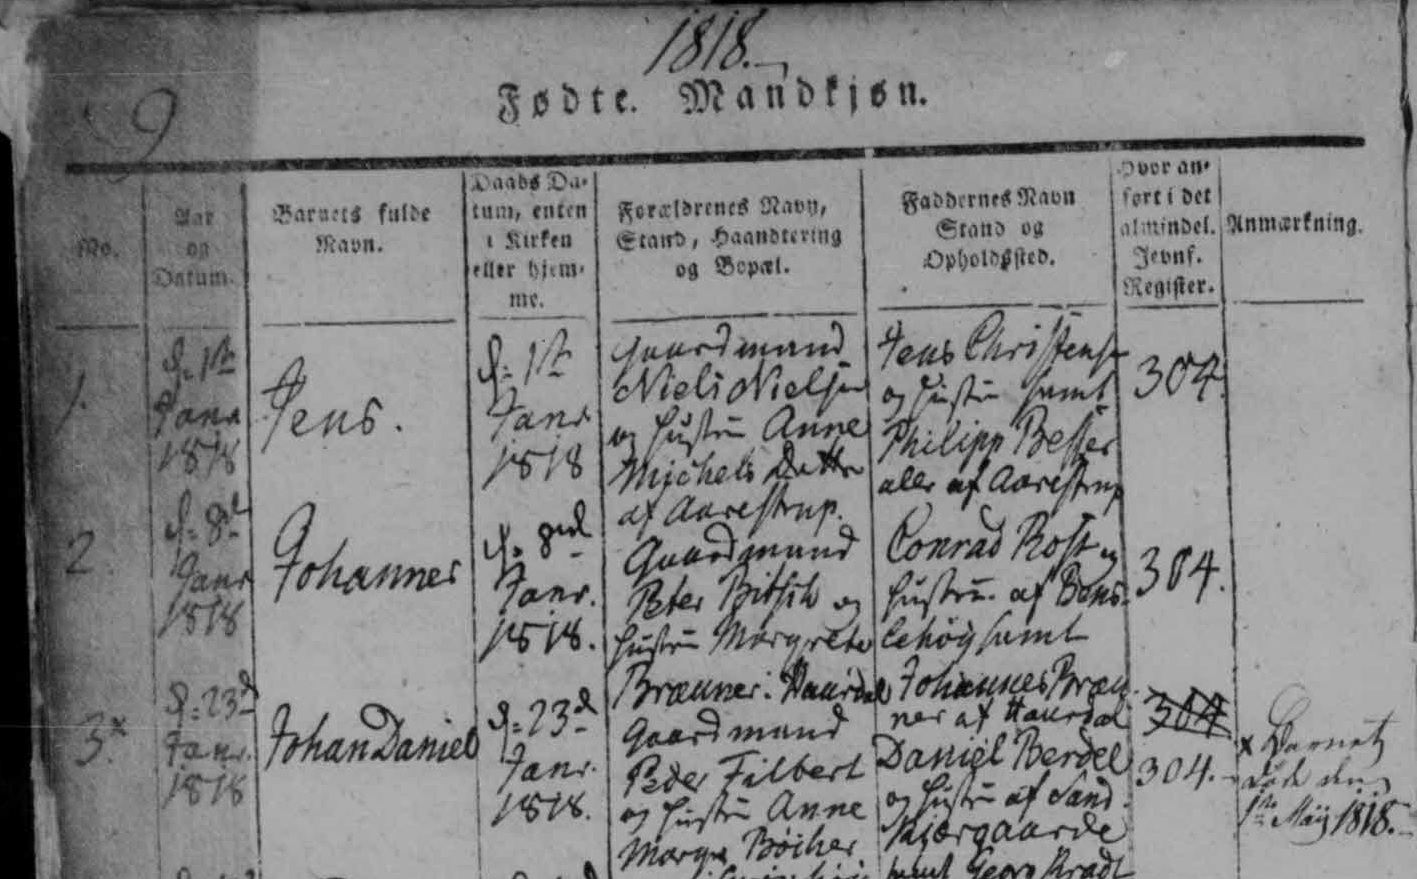 1818.
Fødte. Mandkjøn.
9
No.
Aar
og
Datum.
Barnets fulde
Navn.
Daabs Da-
tum, enten
i Kirken
eller hjem-
me.
Forældrenes Navn,
Stand, Haandtering
og Bopæl.
Faddernes Navn
Stand og
Opholdssted.
Hvor an-
ført i det
almindel.
Jevnf.
Register.
Anmærkning.
1.
d. 1ste
Janr
1818
Jens.
d. 1ste
Janr
1818
Gaardmand
Niels Nielsen
og hustru Anne
Michels Datter
af Aarestrup.
Jens Christensen
og hustru samt
Philipp Besser
alle af Aarestrup
304.
2
d. 8d
Janr
1818
Johannes
d. 8nd
Janr.
1818.
Gaardmand
Peter Bitsch og
hustru Margrete
Brauner. Haurdal
Conrad Rost og
hustru af Dons-
lehøy samt
Johannes Brau-
ner af Haurdal
304.
3.x
d. 23d
Janr.
1818
Johan Daniel
d. 23d
Janr.
1818.
Gaardmand
Peder Filbert
og hustru Anne
Margr. Böicher
Daniel Berdel
og hustru af Sand-
kjærgaarde
samt Georg Kradt
304
304.
x Barnet
døde den
1ste Maij 1818.